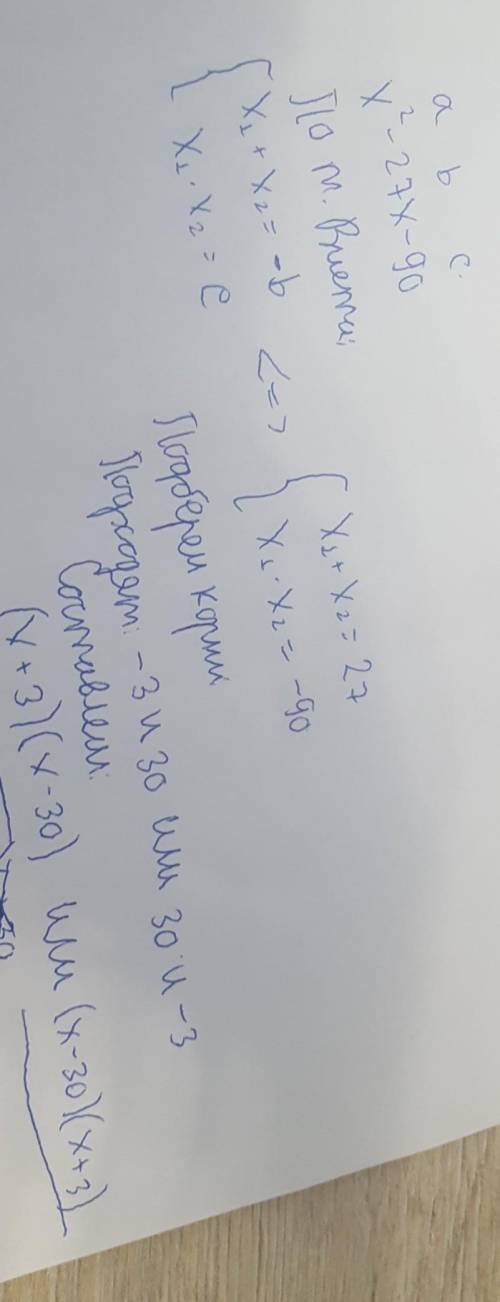 a b c
x² - 27x - 90
По т. Виета:
{ x₁ + x₂ = -b
{ x₁ · x₂ = c
<=>
{ x₁ + x₂ = 27
{ x₁ · x₂ = -90
Подберем корни
Подходят: -3 и 30 или 30 и -3
Составляем:
(x + 3)(x - 30) или (x - 30)(x + 3)